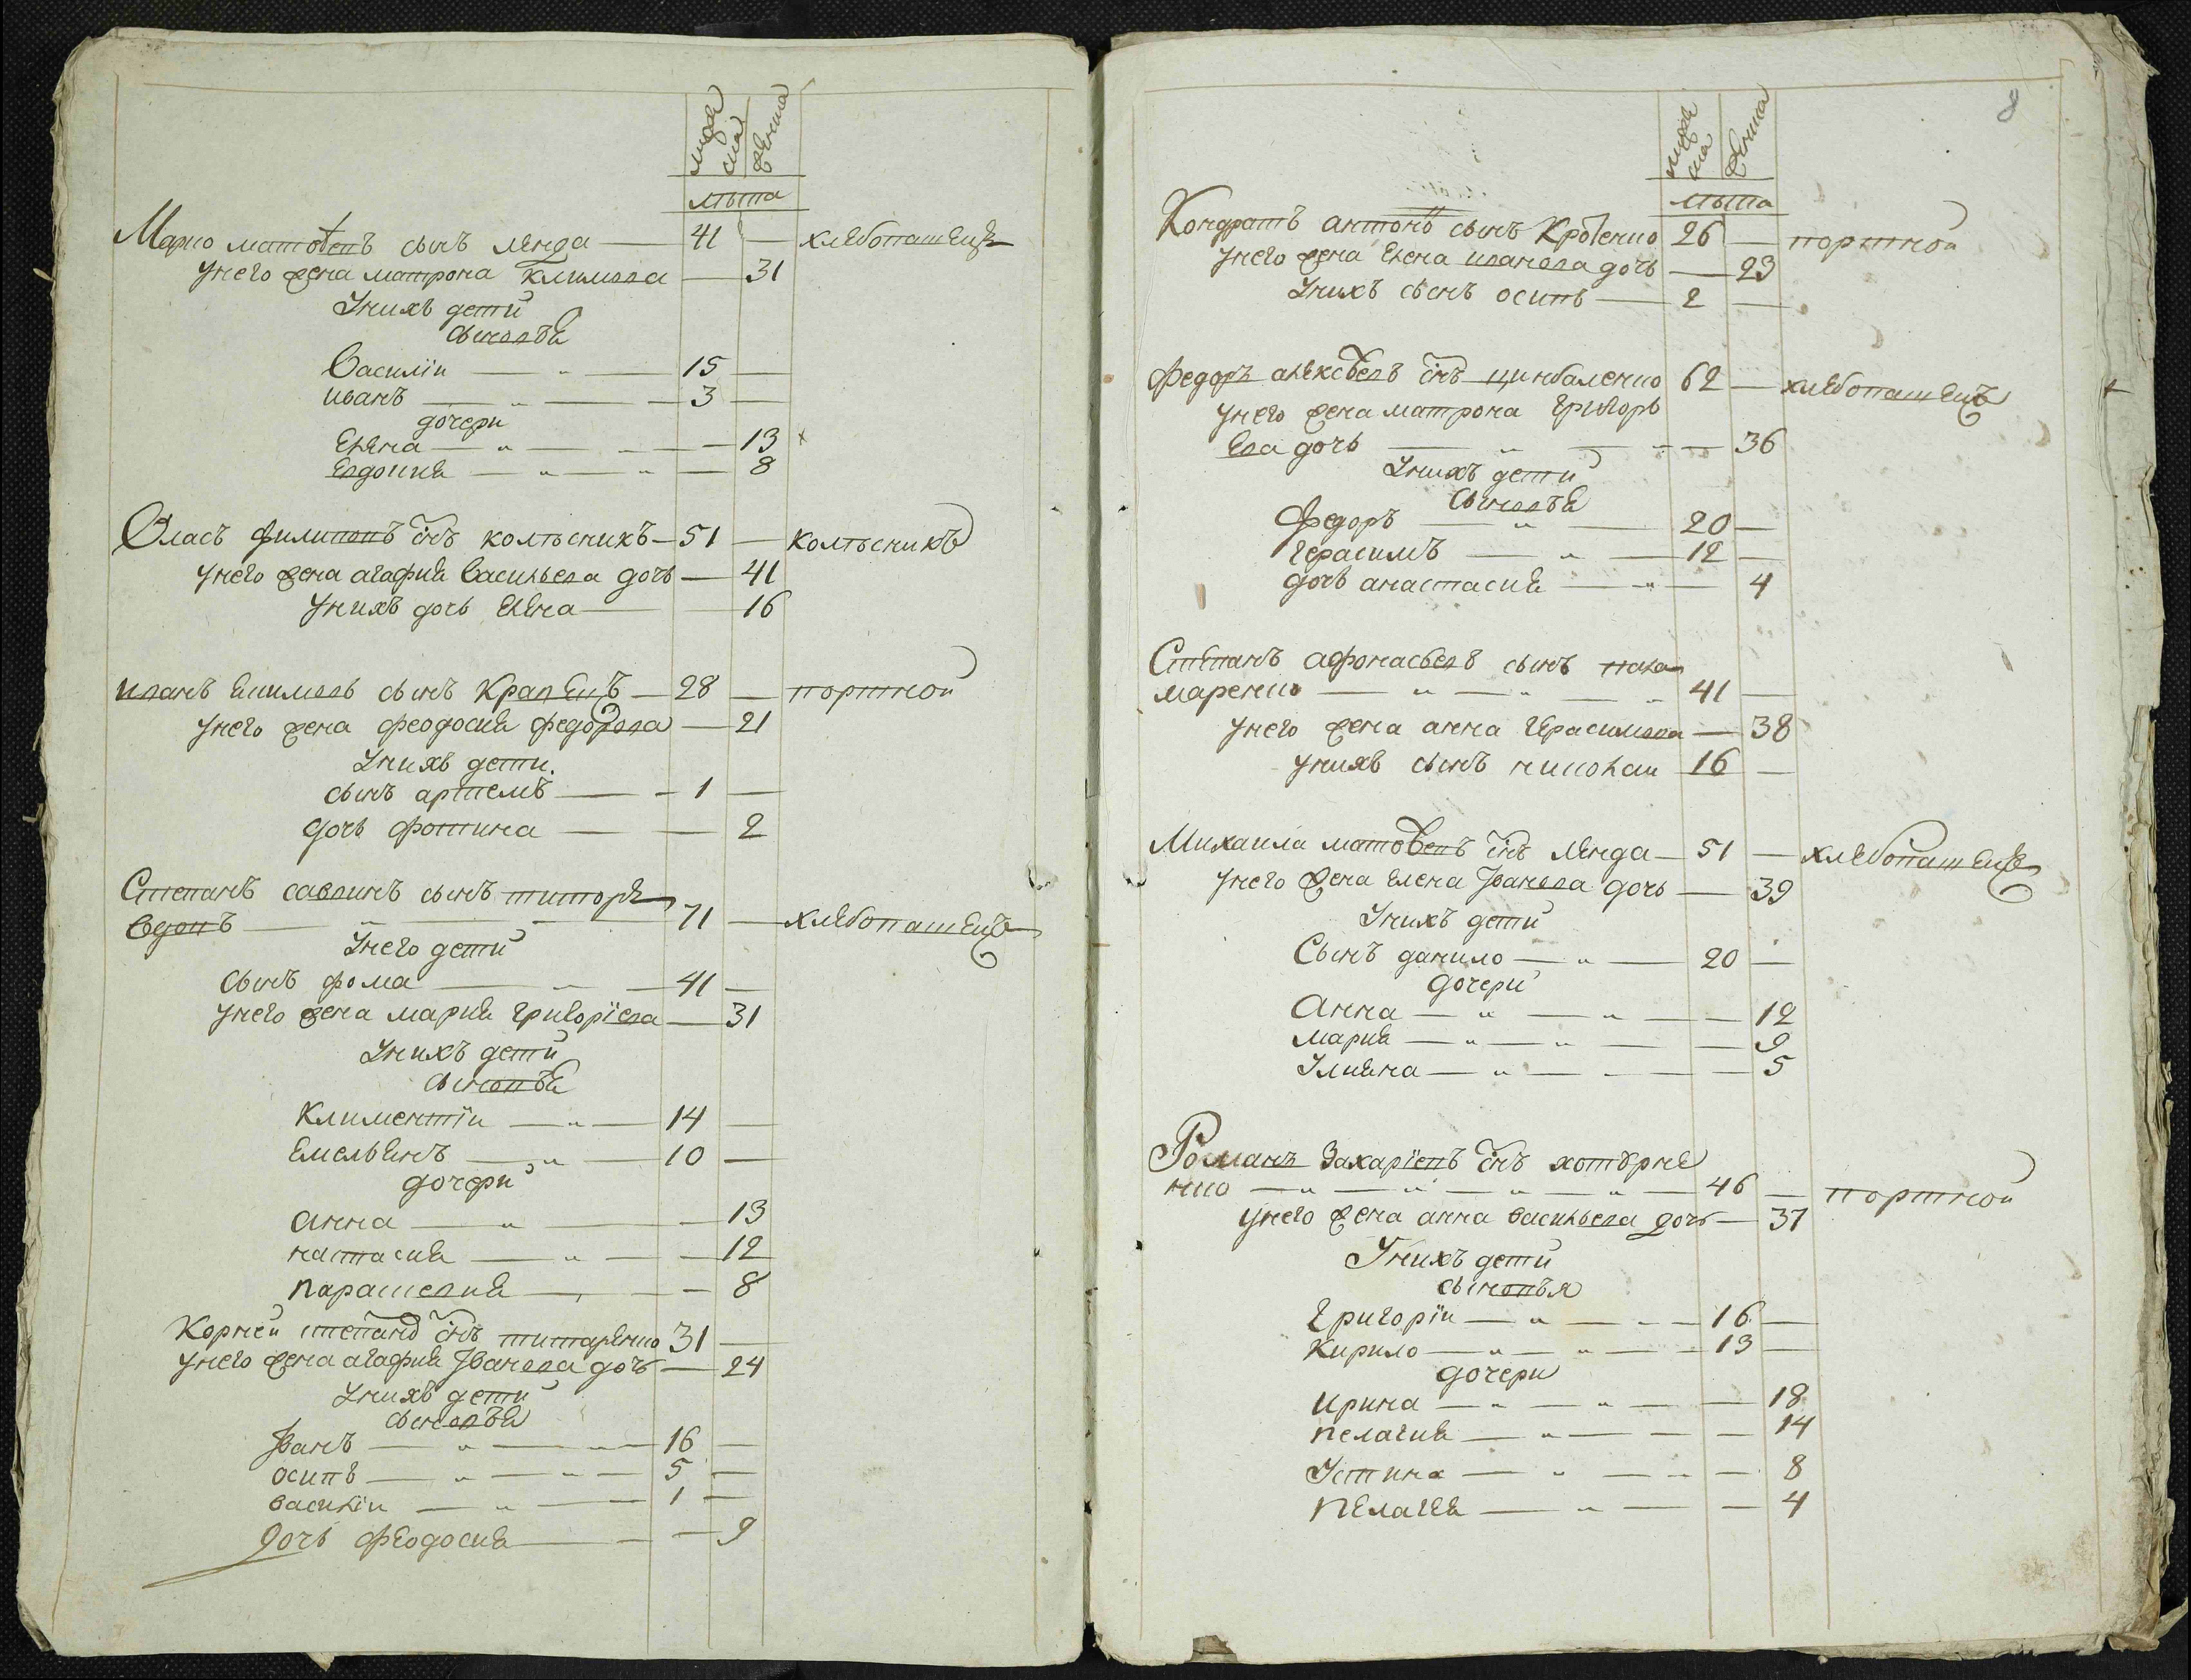 мужеска женска
лѣта
Марко матовеевъ сынъ ленда 41 — хлебопашецъ
унего жена матрона климова — 31
Унихъ дети
сыновъя
Василіи 15 —
иванъ 3 —
дочери
елена — 13
евдокия — 8
Власъ филиповъ снъ колѣсникъ 51 — колѣсникъ
унего жена агафия васильева дочь — 41
унихъ дочь елена — 16
иванъ екимовъ сынъ кравецъ 28 — портнои
унего жена феодосия федорова — 21
Унихъ дети
сынъ артемъ 1 —
дочь фотина — 2
Степанъ саввинъ сынъ титоре
вдовъ 71 — хлебопашецъ
Унего дети
сынъ фома 41 —
унего жена мария григоріева — 31
Унихъ дети
сыновъя
климентіи 14 —
емельянъ 10 —
дочери
анна — 13
настасия — 12
парашевия — 8
Корнеи степанв снъ титаренко 31 —
унего жена агафия Іванова дочь — 24
Унихъ дети
сыновъя
Іванъ 16 —
осипъ 5 —
василіи 1 —
дочь феодосия — 9
8
мужеска женска
лѣта
Кондратъ антонв сынъ 26 — портнои
Унего жена елена иванова дочь — 23
Унихъ сынъ осипъ 2 —
Федоръ алексеевъ снъ цинбаленко 62 — хлебопашецъ
унего жена матрона григорь
ева дочь — 36
Унихъ дети
сыновъя
Федоръ 20 —
герасимъ 12 —
дочь анастасия — 4
Степанъ афонасьевъ сынъ пала
маренко 41 —
унего жена анна герасимова — 38
унихъ сынъ николаи 16 —
Михаила матовеевъ снъ ленда 51 — хлебопашецъ
унего жена елена Іванова дочь — 39
Унихъ дети
Сынъ данило 20 —
дочери
Анна — 12
мария — 9
Улияна — 5
Романъ Захаріевъ снъ
нко 46 — портнои
унего жена анна васильева дочь — 37
Унихъ дети
сыновъя
Григоріи 16 —
Кирило 13 —
дочери
ирина — 18
пелагия — 14
Устина — 8
пелагея — 4